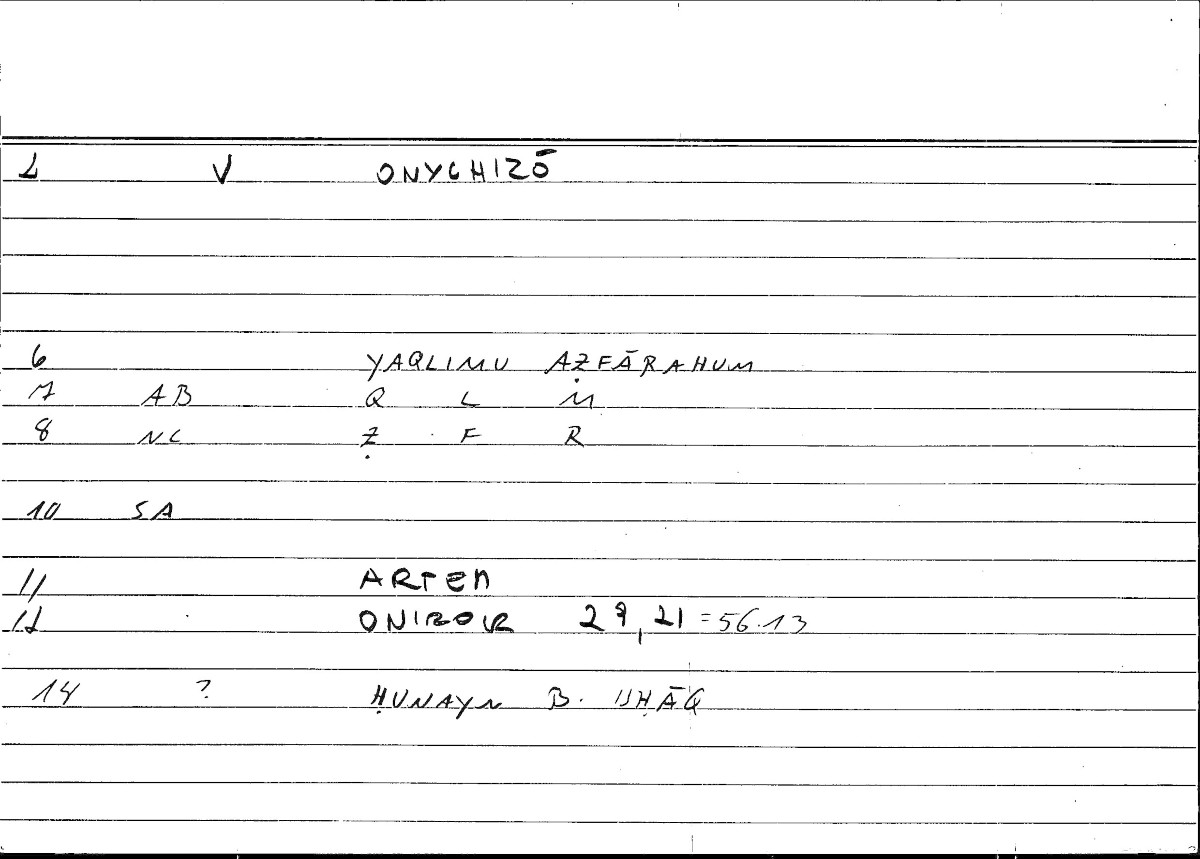 2 V ONYCHIZŌ
6 YAQLIMU AẒFĀRAHUM
7 AB Q L M
8 NC Ẓ F R
10 SA
11 ARTEM
12 ONIROCR 29,21 =56.13
14 ? ḤUNAYN B. ISḤĀQ